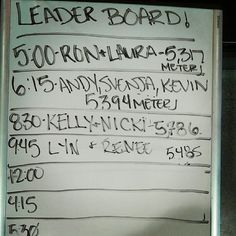 LEADER BOARD!
5:00-RON+LAURA-5,317
METERS
6:15-ANDY, SVENJA, KEVIN
5394 METERS
830-KELLY+NICKI-5786.
945 LYN & RENEE 5485
12:00
4:15
5:30